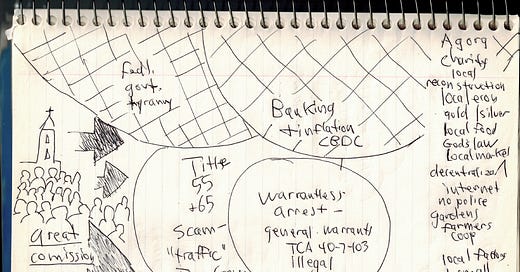 fedl.
govt.
tyranny
Banking
+ inflation
CBDC
Title
55
+65
scam-
"traffic"
Warrantless
arrest -
general warrants
TCA 40-7-103
Illegal
great
comission
Agora
charity
local
reconstruction
local econ
gold/silver
local food
Gods law
local market
internet
no police
gardens
farmers
coop
local factory
small